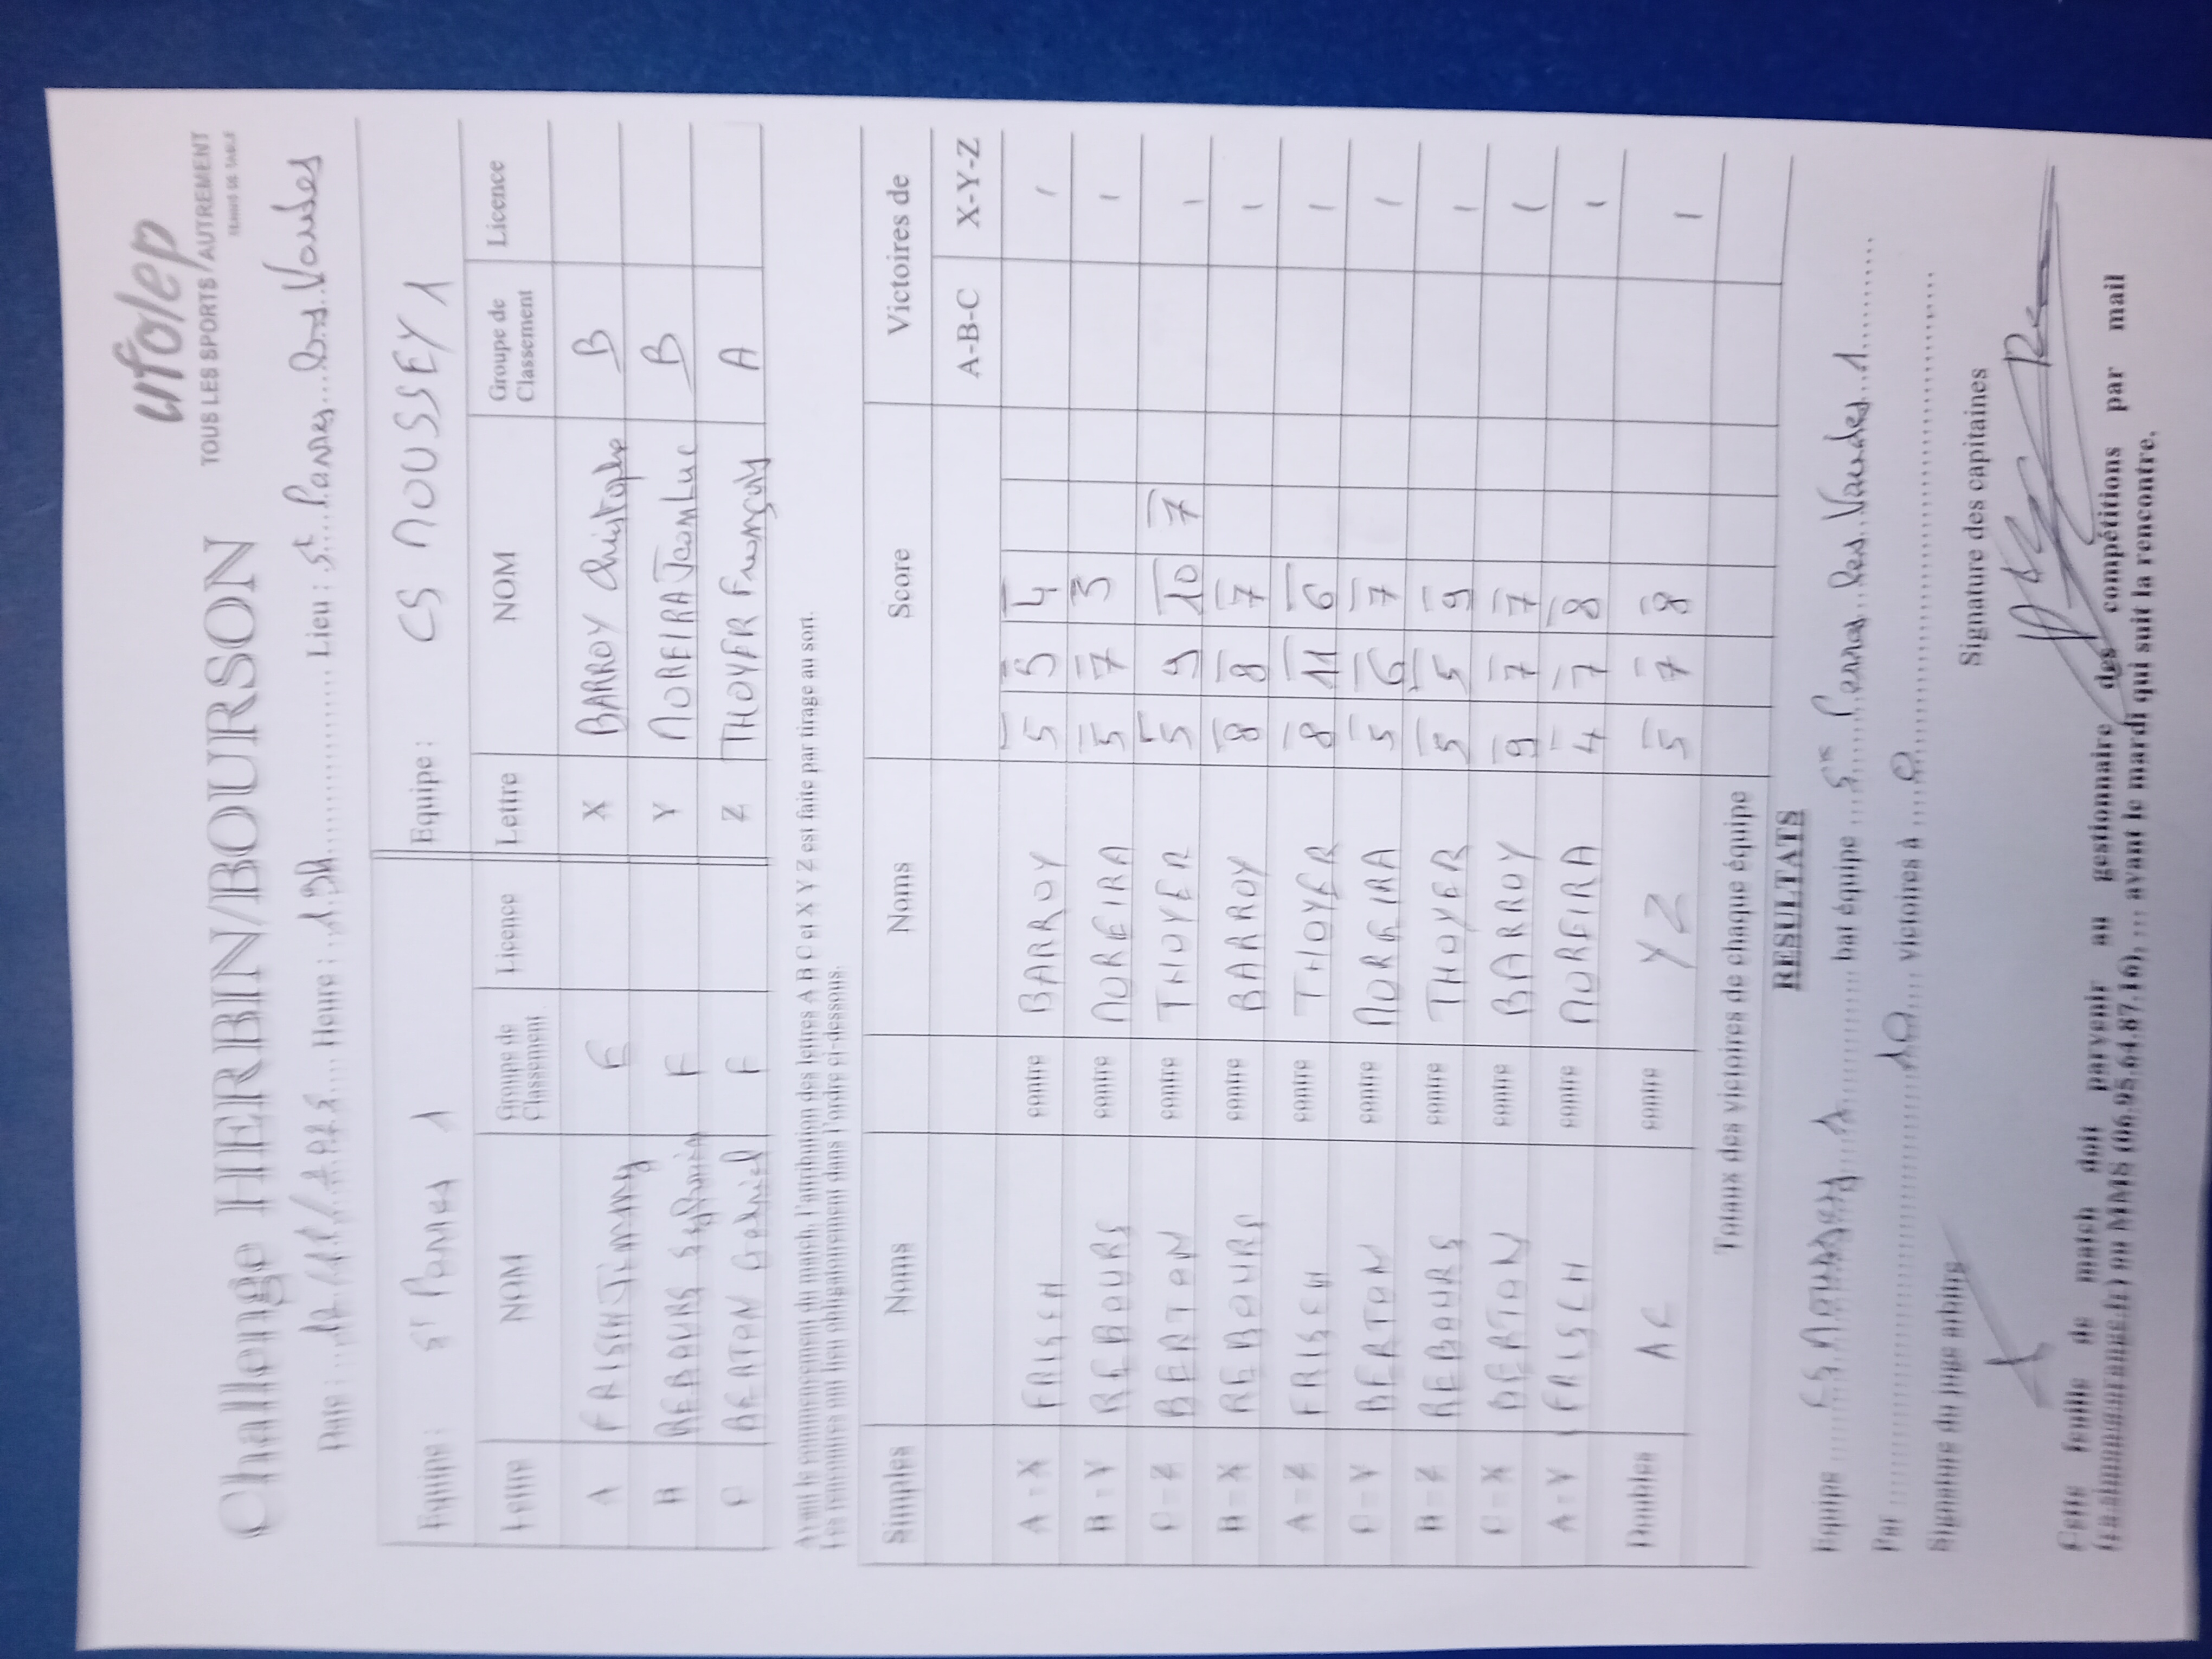 ufolep
TOUS LES SPORTS / AUTREMENT
TENNIS DE TABLE
Challenge HERBIN/BOURSON
Date : Heure : 19h Lieu : St Parres les Vaudes
Equipe : St Parres 1 Equipe : CS MOUSSEY 1
Lettre NOM Groupe de Classement Licence Lettre NOM Groupe de Classement Licence
A FRISCH Jimmy F X BARROY Christophe B
B REBOURS F Y MOREIRA Jean Luc B
C BERTON Gabriel F Z THOYER François A
Avant le commencement du match, l'attribution des lettres A B C et X Y Z est faite par tirage au sort.
Les rencontres ont lieu obligatoirement dans l'ordre ci-dessous.
Simples Noms Noms Score Victoires de
A-B-C X-Y-Z
A – X FRISCH contre BARROY 5 5 4 1
B – Y REBOURS contre MOREIRA 5 7 3 1
C – Z BERTON contre THOYER 5 9 10 7 1
B – X REBOURS contre BARROY 8 8 7 1
A – Z FRISCH contre THOYER 8 11 6 1
C – Y BERTON contre MOREIRA 5 6 7 1
B – Z REBOURS contre THOYER 5 5 9 1
C – X BERTON contre BARROY 9 7 7 1
A – Y FRISCH contre MOREIRA 4 7 8 1
Doubles AC contre YZ 5 7 8 1
Totaux des victoires de chaque équipe
RESULTATS
Equipe CS Moussey 1 bat équipe St Parres les Vaudes 1
Par 10 victoires à 0
Signature du juge arbitre Signature des capitaines
Cette feuille de match doit parvenir au gestionnaire des compétitions par mail
ou MMS (06.95.64.87.16), avant le mardi qui suit la rencontre.